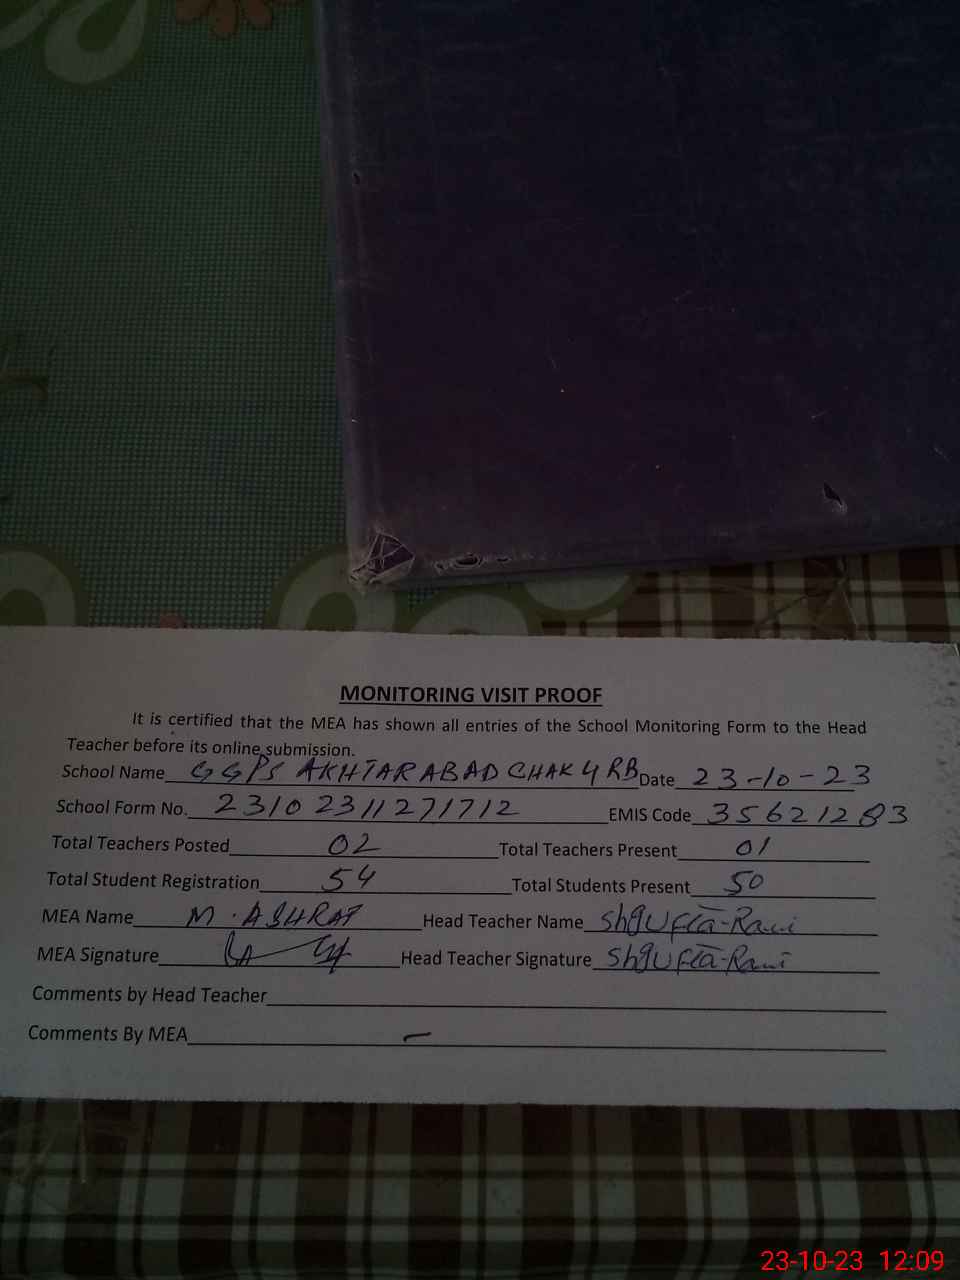 MONITORING VISIT PROOF
It is certified that the MEA has shown all entries of the School Monitoring Form to the Head
Teacher before its online submission.
School Name GGPS AKHTAR ABAD CHAK 4 RB Date 23-10-23
School Form No. 2310231127 1712 EMIS Code 35621283
Total Teachers Posted 02 Total Teachers Present 01
Total Student Registration 54 Total Students Present 50
MEA Name M. ASHRAF Head Teacher Name Shgufta-Rani
MEA Signature Head Teacher Signature Shgufta-Rani
Comments by Head Teacher
Comments By MEA –
23-10-23 12:09